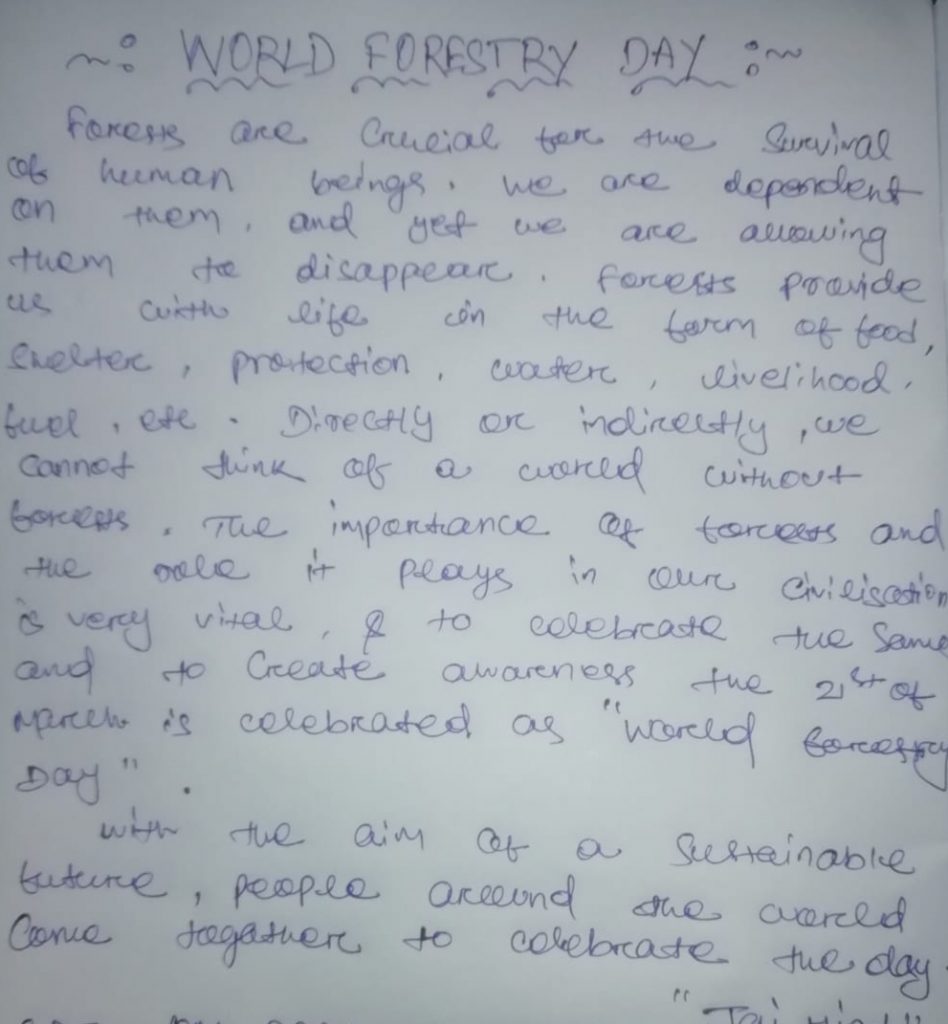 ~: WORLD FORESTRY DAY :~
Forests are Crucial for the Survival
of human beings. We are dependent
on them, and yet we are allowing
them to disappear. Forests provide
us with life in the form of food,
Shelter, protection, water, livelihood,
fuel, etc. Directly or indirectly, we
cannot think of a world without
forests. The importance of forests and
the role it plays in our civilisation
is very vital, & to celebrate the Same
and to Create awareness the 21st of
March is celebrated as "World forestry
Day".
With the aim of a Sustainable
future, people around the world
Come together to celebrate the day.
"